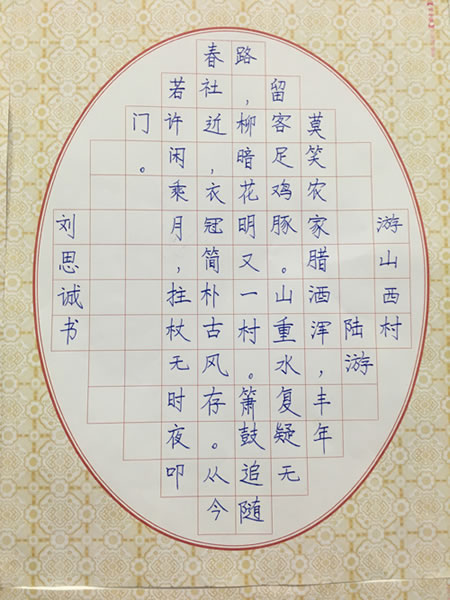 游山西村
陆游
莫笑农家腊酒浑，丰年
留客足鸡豚。山重水复疑无
路，柳暗花明又一村。箫鼓追随
春社近，衣冠简朴古风存。从今
若许闲乘月，拄杖无时夜叩
门。
刘思诚书